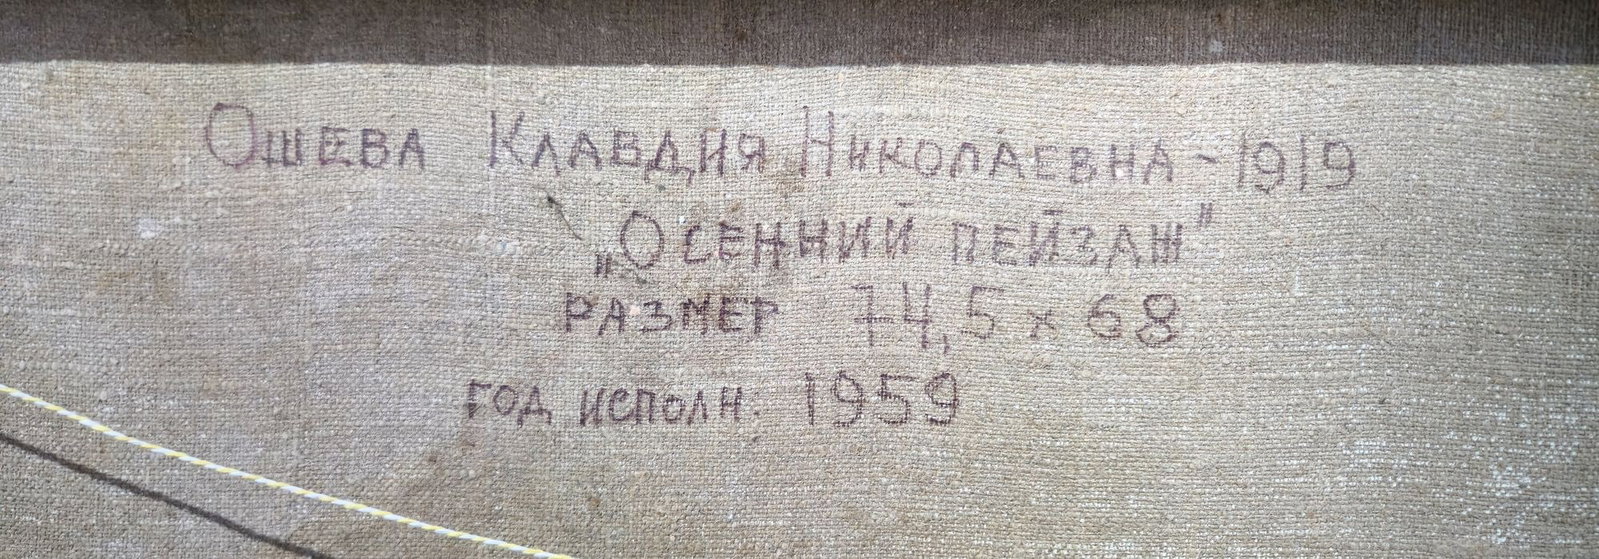 Ошева Клавдия Николаевна - 1919
„Осенний пейзаж"
размер 74,5 х 68
год исполн. 1959